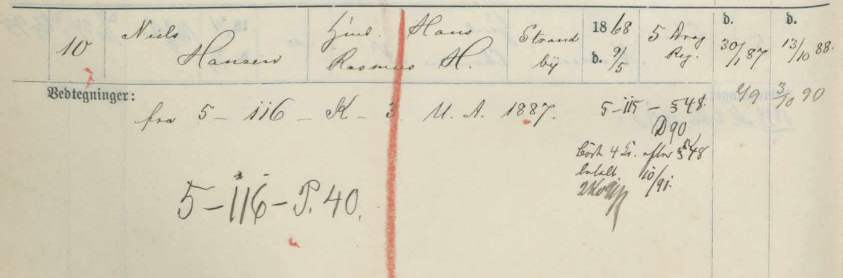 10 Niels Hansen
Gmd. Hans Rasmus H.
Strandby
1868 d. 9/5
5 Drag Reg.
d. 30/1 87
d. 13/10 88.
Vedtegninger:
fra 5 - 116 - K - 3 U. A. 1887.
5-115 - 348.
D90
4/9
3/10 90
4 Kr. efter 348
betalt 10/91.
5-116-P. 40.